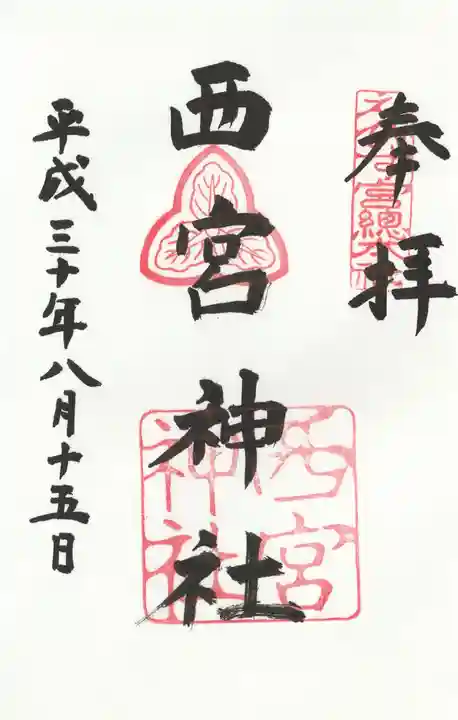 奉拝
西宮神社
西宮神社
平成三十年八月十五日